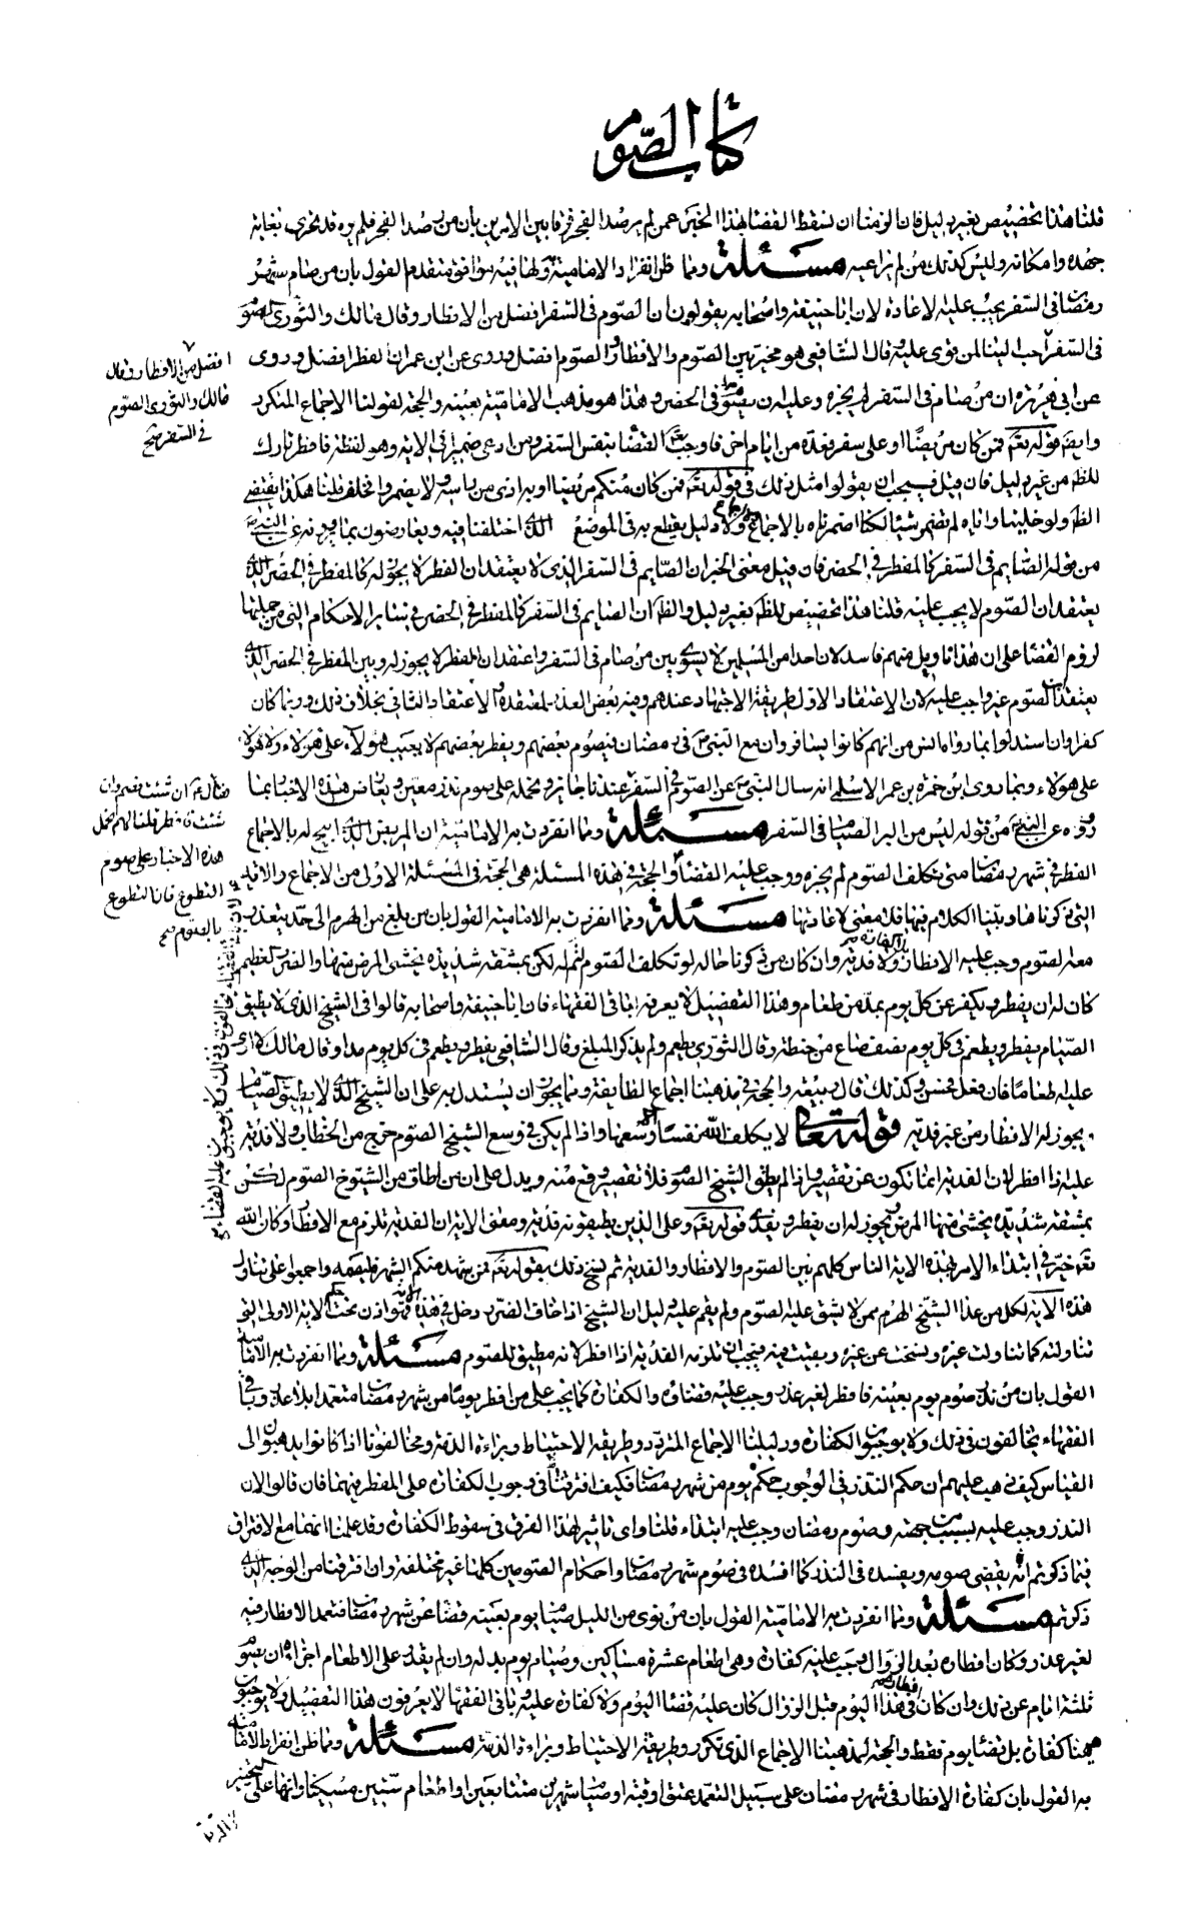 كتاب الصوم
قلنا هذا تخصيص بغير دليل فان الزمنا ان نسقط القضا بهذا الخبر عمن لم يرصد الفجر فرقنا بين الامرين بأن من رصد الفجر فلم يره قد تحرى بغاية
جهده وامكانه وليس كذلك من لم يراعيه مسئلة ومما ظن انفراد الامامية به ولها فيه موافق متقدم القول بان من صام شهر
رمضان في السفر يجب عليه الاعادة لان ابا حنيفة واصحابه يقولون ان الصوم في السفر افضل من الافطار وقال مالك والثوري الصوم
في السفر احب الينا لمن قوى عليه وقال الشافعي هو مخير بين الصوم والافطار والصوم افضل وروى عن ابن عمر ان الفطر افضل وروى
عن ابى هريرة ان من صام في السفر لم يجزه وعليه ان يصوم في الحضر وهذا هو مذهب الامامية بعينه والحجة لقولنا الاجماع المتكرر
وايضا قوله تعه فمن كان مريضا او على سفر فعدة من ايام اخر فاوجب تعه القضا بنفس السفر ومن ادعى ضميرا في الاية وهو لفظة فافطر تارك
للظه من غير دليل فان قيل فيجب ان يقولوا مثل ذلك في قوله تعه فمن كان منكم مريضا او به اذى من راسه ولا يضمروا فحلق قلنا هكذا يقتضى
الظه ولو خلينا واياه لم نضمر شيئا لكنا اضمرناه بالاجماع ولا اجماع ولا دليل يقطع به في الموضع الذى اختلفنا فيه ويعارضون بما يروونه عن النبي ص
من قوله الصايم في السفر كالمفطر في الحضر فان قيل معنى الخبر ان الصايم في السفر الذى لا يعتقد ان الفطر لا يجوز له كالمفطر في الحضر الذى
يعتقد ان الصوم لا يجب عليه قلنا هذا تخصيص للظه بغير دليل والظه ان الصايم في السفر كالمفطر في الحضر في سائر الاحكام التى من جملتها
لزوم القضا على ان هذا تاويل منهم فاسد لان احدا من المسلمين لا يسوى بين من صام في السفر واعتقد ان الفطر لا يجوز له وبين المفطر في الحضر الذى
يعتقد ان الصوم غير واجب عليه لان الاعتقاد الاول طريقة الاجتهاد عندهم وفيه بعض العذر لمعتقده والاعتقاد الثاني بخلاف ذلك وربما كان
كفرا وان استدلوا بما رواه انس من انهم كانوا يسافرون مع النبي ص في رمضان فيصوم بعضهم ويفطر بعضهم لا يعيب هولاء على هولاء ولا هولاء
على هولاء وبما روى ابن حمزة بن عمر الاسلمى انه سال النبي ص عن الصوم في السفر عندنا جايز ونحمله على صوم نذر معين ويعارض هذه الاخبار بما
رووه عن النبي ص من قوله ليس من البر الصيام في السفر مسئلة ومما انفردت به الامامية ان المريض الذى ابيح له بالاجماع
الفطر في شهر رمضان متى تكلف الصوم لم يجزه ووجب عليه القضا والحجة في هذه المسئلة هى الحجة في المسئلة الاولى من الاجماع والاية
التى ذكرناها وبينا الكلام فيها فلا معنى لاعادتها مسئلة ومما انفردت به الامامية القول بان من بلغ من الهرم الى حد يتعذر
معه الصوم وجب عليه الافطار بلا كفارة ولا فدية وان كان من ذكرنا حاله لو تكلف الصوم لتم له لكن بمشقة شديدة يخشى المرض منها والضرر العظيم
كان له ان يفطر ويكفر عن كل يوم بمد من طعام وهذا التفصيل لا يعرفه باقى الفقهاء فان ابا حنيفة واصحابه قالوا في الشيخ الذى لا يطيق
الصيام يفطر ويطعم في كل يوم نصف صاع من حنطة وقال الثورى يطعم ولم يذكر المبلغ وقال الشافعي يفطر ويطعم في كل يوم مدا وقال مالك لا ارى
عليه طعاما فان فعل فحسن وكذلك قال ربيعة والحجة في مذهبنا اجماع الطايفة ومما يجوز ان يستدل به على ان الشيخ الذى لا يطيق الصيام
يجوز له الافطار من غير فدية قوله تعالى لا يكلف الله نفسا الا وسعها واذا لم يكن في وسع الشيخ الصوم خرج من الخطاب ولا فدية
عليه اذا افطر لان الفدية انما تكون عن تقصير واذا لم يطق الشيخ الصوم فلا تقصير وقع منه ويدل على ان من اطاق من الشيوخ الصوم لكن
بمشقة شديدة يخشى منها المرض يجوز له ان يفطر ويفدى قوله تعه وعلى الذين يطيقونه فدية ومعنى الاية ان الفدية تلزم مع الافطار وكان الله
تعه خير في ابتداء الامر بهذه الاية الناس كلهم بين الصوم والافطار والفدية ثم نسخ ذلك بقوله تعه فمن شهد منكم الشهر فليصمه واجمعوا على تناول
هذه الاية لكل من عدا الشيخ الهرم ممن لا يشق عليه الصوم ولم يقم عليه دليل ان الشيخ اذا خاف الضرر دخل في هذه الاية فهو اذن تحت حكم الاية الاولى التى
تناولته كما تناولت غيره ونسخت عن غيره وبقيت فيه فيجب ان تلزمه الفدية اذا افطر لانه مطيق للصوم مسئلة ومما انفردت به الامامية
القول بان من نذر صوم يوم بعينه فافطر لغير عذر وجب عليه قضاؤه والكفارة كما يجب على من افطر يوما من شهر رمضان متعمدا بلا عذر وباقى
الفقهاء يخالفون في ذلك ولا يوجبون الكفارة ودليلنا الاجماع المتردد وطريقة الاحتياط وبراءة الذمة ومخالفونا اذا كانوا يذهبون الى
القياس كيف ذهب عليهم ان حكم النذر في الوجوب حكم يوم من شهر رمضان فكيف افترقنا في وجوب الكفارة على المفطر فيهما فان قالوا لان
النذر وجب عليه بسبب من جهته وصوم رمضان وجب عليه ابتداء قلنا واى تاثير لهذا الفرق في سقوط الكفارة وقد علمنا انهما مع الافتراق
فيما ذكرتم انه يقضى صومه ويفسده في النذر كما افسده في صوم شهر رمضان واحكام الصومين كلها غير مختلفة وان افترقنا من الوجه الذى
ذكرتم مسئلة ومما انفردت به الامامية القول بان من نوى من الليل صيام يوم بعينه قضا عن شهر رمضان فتعمد الافطار فيه
لغير عذر وكان افطاره بعد الزوال وجب عليه كفارة وهى اطعام عشرة مساكين وصيام يوم بدله وان لم يقدر على الاطعام اجزاه ان يصوم
ثلثة ايام عن ذلك وان كان افطاره في هذا اليوم قبل الزوال كان عليه قضا اليوم ولا كفارة عليه وباقى الفقها لا يعرفون هذا التفصيل ولا يوجبون
هيهنا كفارة بل قضا يوم فقط والحجة لمذهبنا الاجماع الذى تكرر وطريقة الاحتياط وبراءة الذمة مسئلة ومما ظن انفراد الامامية
به القول بان كفارة الافطار في شهر رمضان على سبيل التعمد عتق رقبة او صيام شهرين متتابعين او اطعام ستين مسكينا وانها على التخيير
افضل من الافطار وقال
مالك والثورى الصوم
في السفر صح
فقال ع ان شئت فصم وان
شئت فافطر قلنا لهم نحمل
هذه الاخبار على صوم
التطوع فان التطوع
بالصوم صح